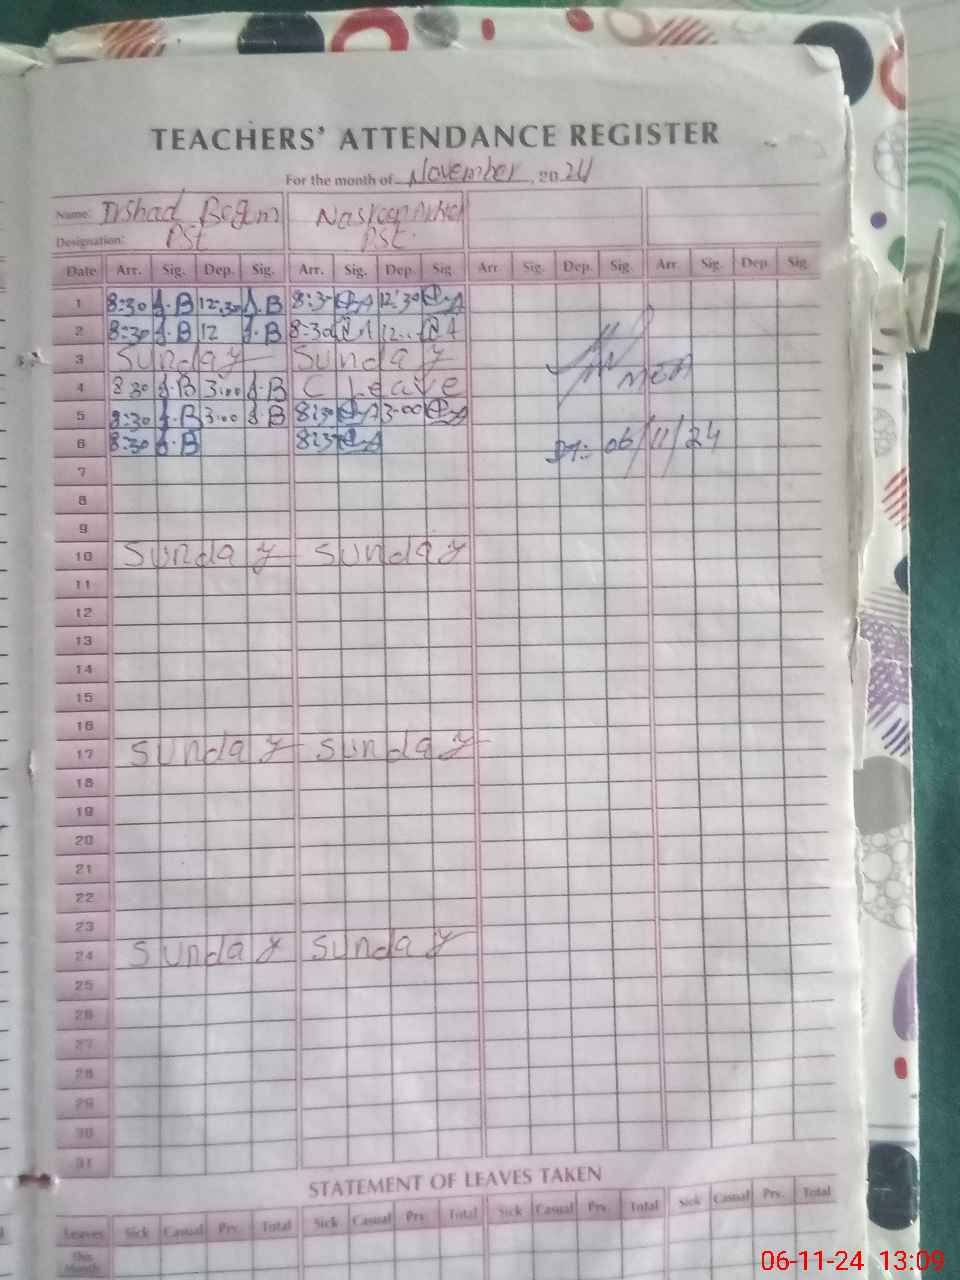 TEACHERS' ATTENDANCE REGISTER
For the month of November, 2024
Name: Irshad Begum Nasreen Akhter
Designation: PST PST.
Date Arr. Sig. Dep. Sig. Arr. Sig. Dep. Sig Arr. Sig. Dep. Sig. Arr. Sig. Dep. Sig.
1 8:30 I.B 12:30 I.B 8:30 12:30
2 8:30 I.B 12 I.B 8:30 12..
3 Sunday Sunday
4 8 30 I.B 3:00 I.B C Leave
MEA
5 8:30 I.B 3:00 I.B 8:30 3:00
6 8:30 I.B 8:30
DT:- 06/11/24
7
8
9
10 Sunday Sunday
11
12
13
14
15
16
17 Sunday Sunday
18
19
20
21
22
23
24 Sunday Sunday
25
26
27
28
29
30
31
STATEMENT OF LEAVES TAKEN
Leaves Sick Casual Prv. Total Sick Casual Prv. Total Sick Casual Prv. Total Sick Casual Prv. Total
This Month
06-11-24 13:09